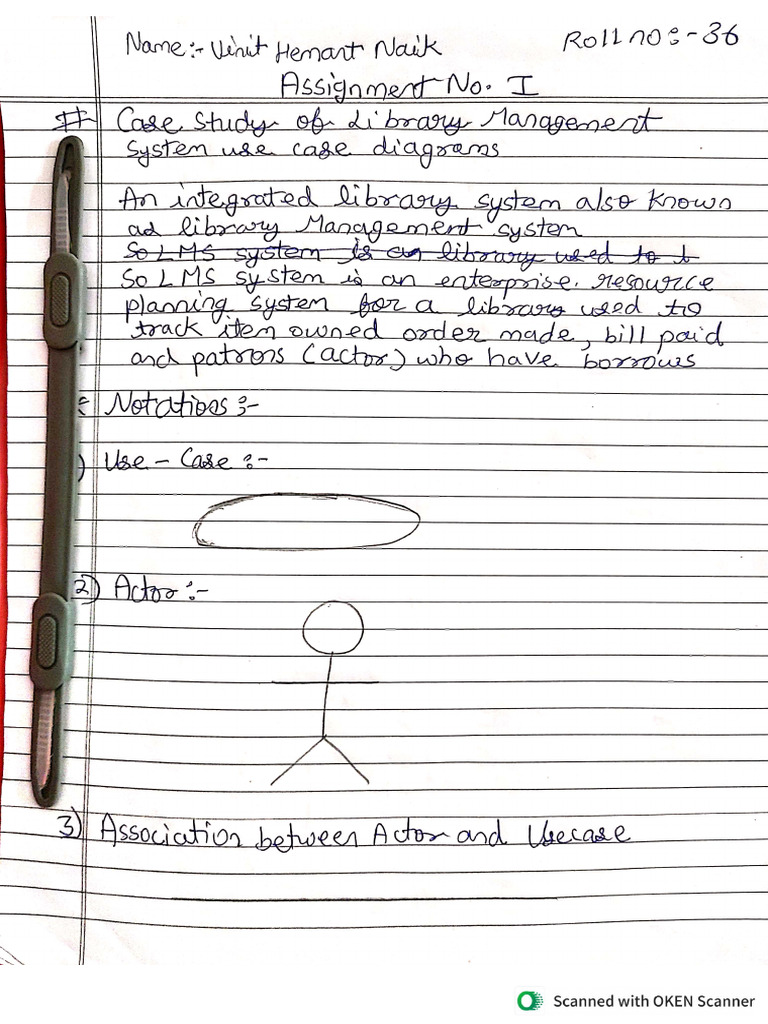 Name:- Vinit Hemant Naik
Roll no:- 36
Assignment No. I
# Case Study of Library Management
System use case diagrams
An integrated library system also known
ad library Management system
So LMS system is an library used to t
So LMS system is an enterprise resource
planning system for a library used to
track item owned order made, bill paid
and patrons (actor) who have borrows
Notations :-
) Use - Case :-
2) Actor :-
3) Association between Actor and Usecase
Scanned with OKEN Scanner